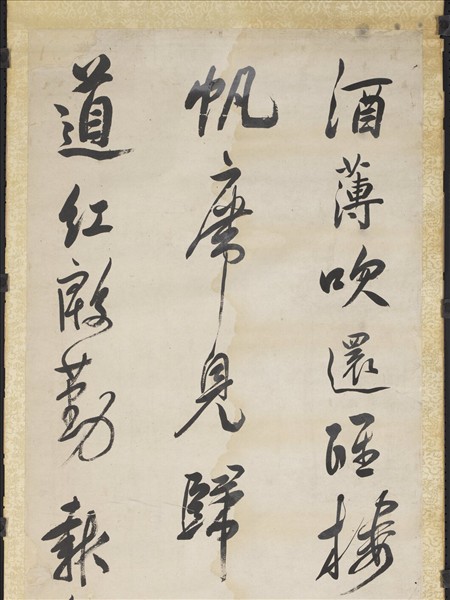 酒薄吹還醒樓
帆席見歸
道紅殷勤報